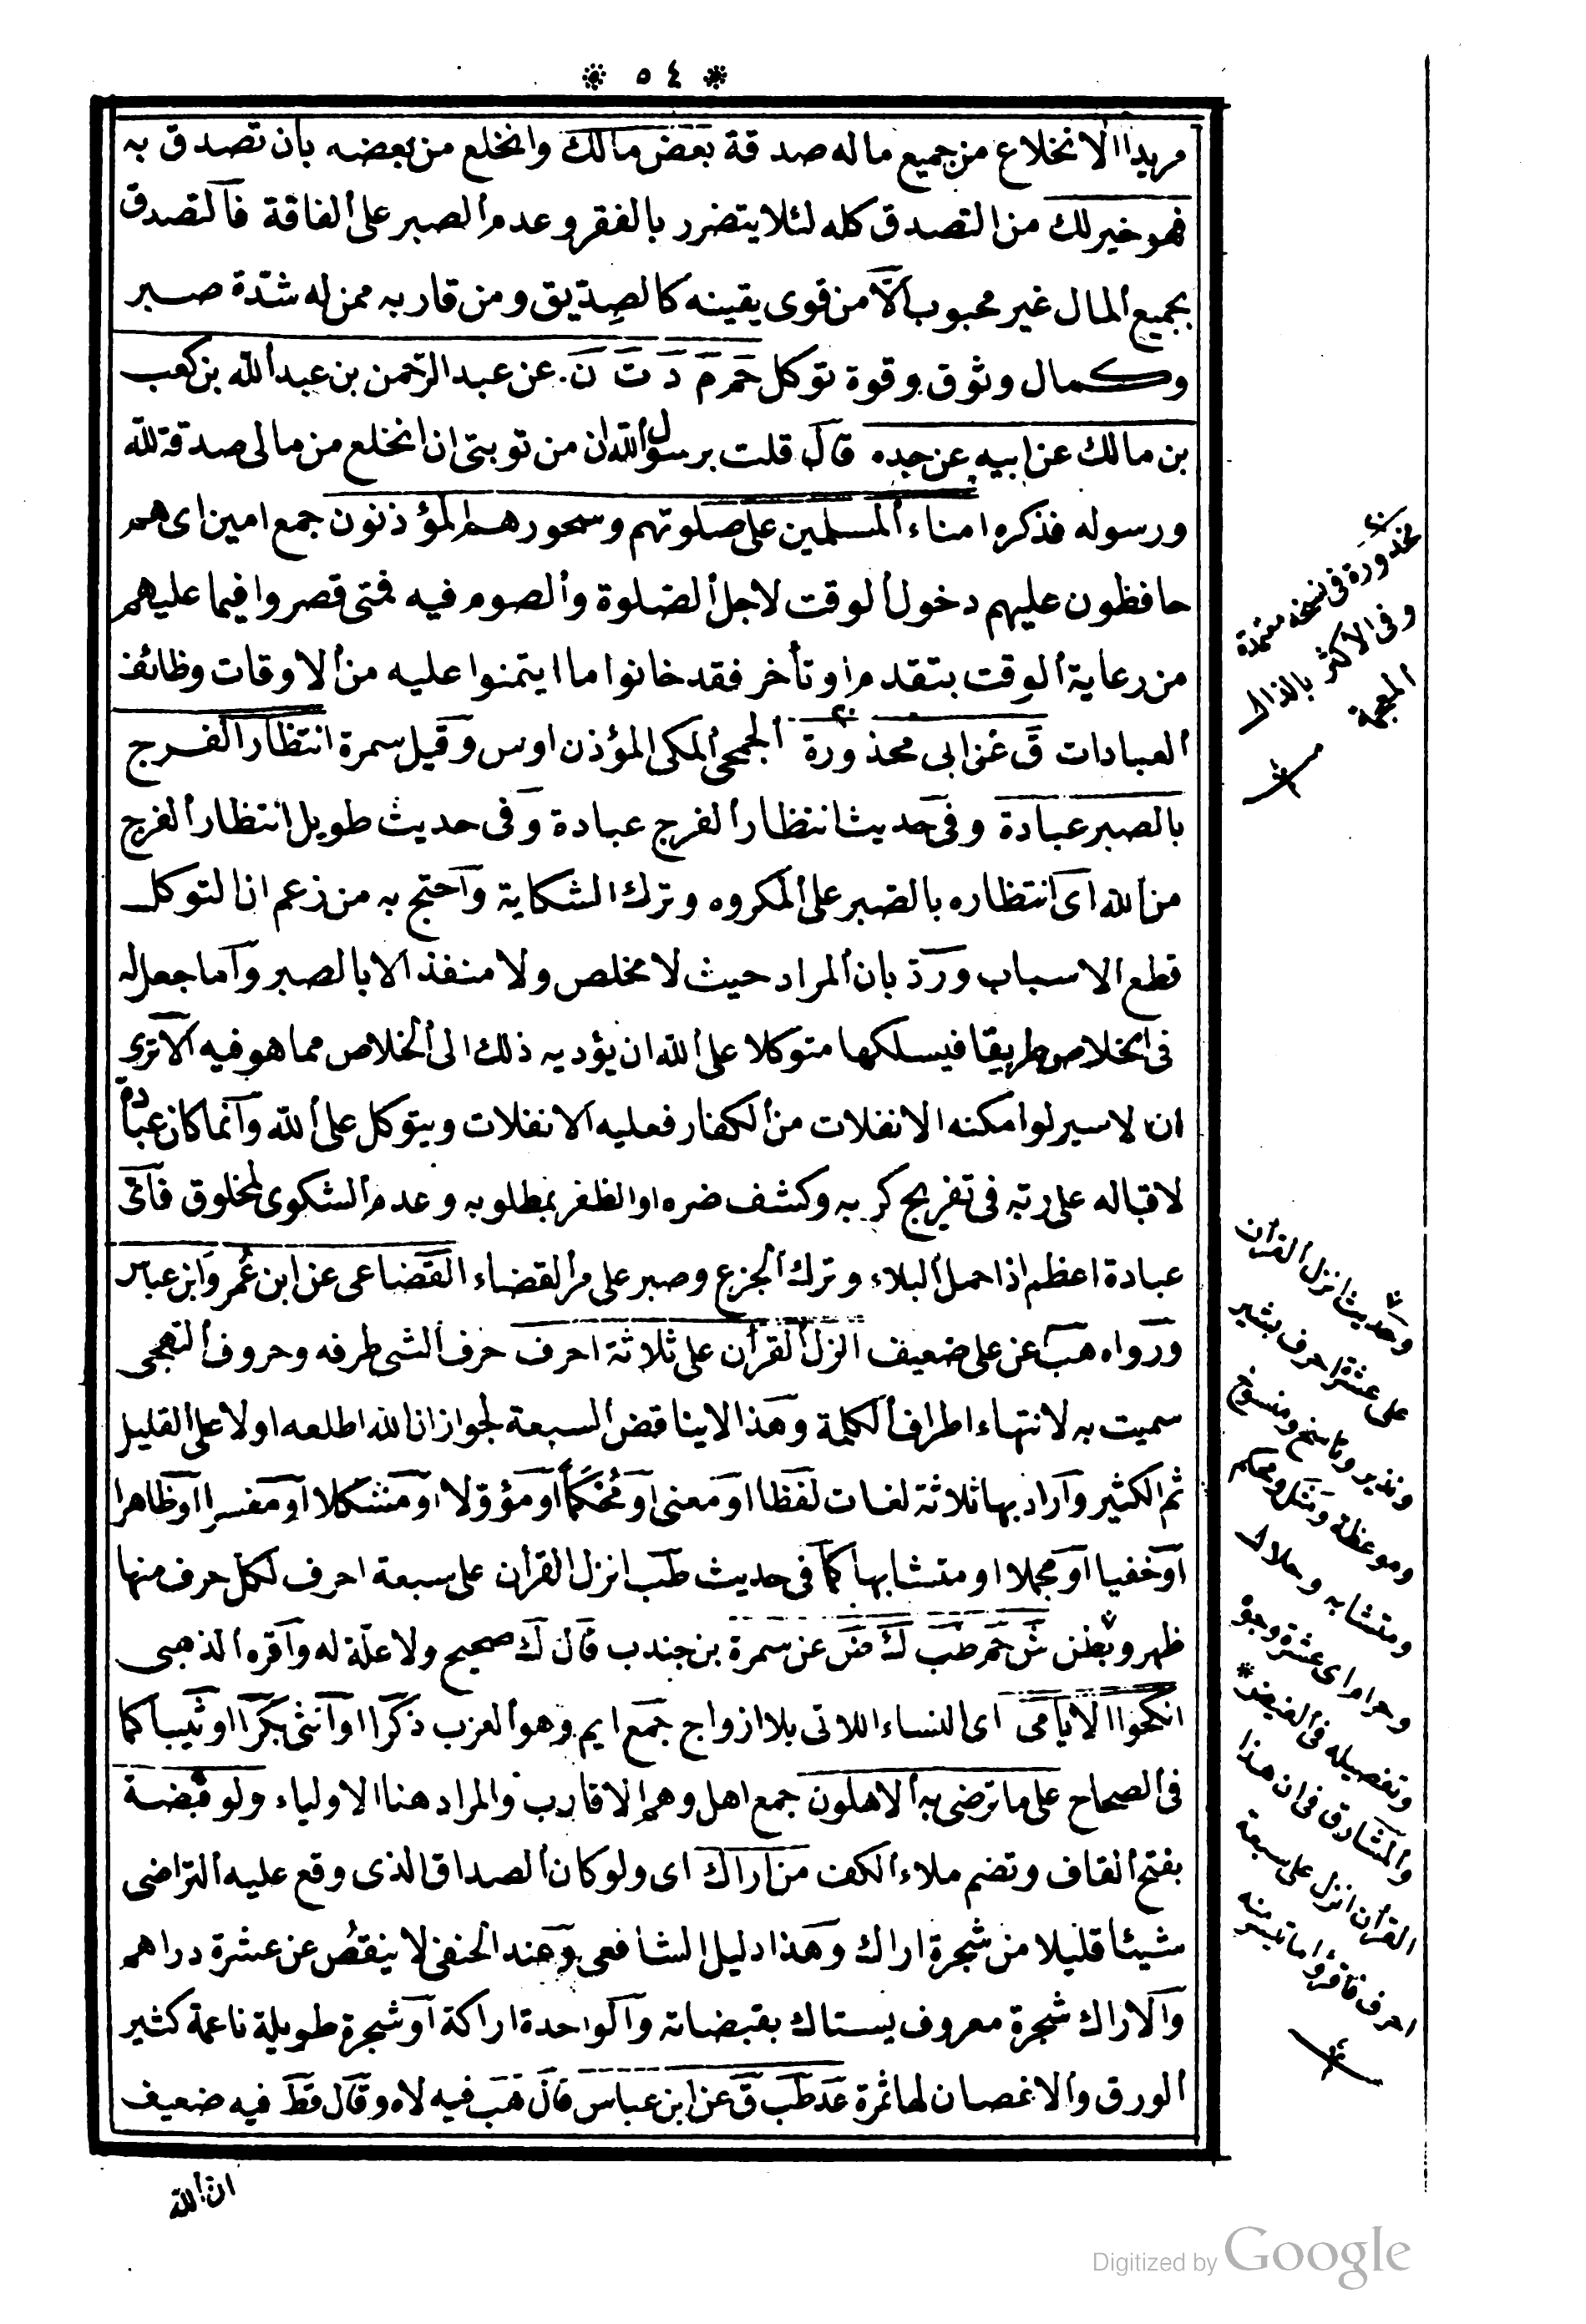 * ٥٤ *
مريدا الانخلاع من جميع ماله صدقة بعض مالك وانخلع من بعضه بأن تصدق به
فهو خير لك من التصدق كله لئلا يتضرر بالفقر وعدم الصبر على الفاقة فالتصدق
بجميع المال غير محبوب الا من قوى يقينه كالصديق ومن قاربه ممن له شدة صبر
وكمال وثوق وقوة توكل حم م د ت ن عن عبد الرحمن بن عبد الله بن كعب
بن مالك عن ابيه عن جده قال قلت يرسول الله ان من توبتى ان انخلع من مالى صدقة لله
ورسوله فذكره امناء المسلمين على صلوتهم وسحورهم المؤذنون جمع امين اى هم
حافظون عليهم دخول الوقت لاجل الصلوة والصوم فيه فمتى قصروا فيما عليهم
من رعاية الوقت بتقدم او تأخر فقد خانوا ما ايتمنوا عليه من الاوقات وظائف
العبادات ق عن ابى محذورة الجمحى المكى المؤذن اوس وقيل سمرة انتظار الفرج
بالصبر عبادة وفى حديث انتظار الفرج عبادة وفى حديث طويل انتظار الفرج
من الله اى انتظاره بالصبر على المكروه وترك الشكاية واحتج به من زعم ان التوكل
قطع الاسباب ورد بان المراد حيث لا مخلص ولا منفذ الا بالصبر واما جعل له
فى الخلاص طريقا فيسلكها متوكلا على الله ان يؤديه ذلك الى الخلاص مما هو فيه الا ترى
ان لاسير لو امكنه الانفلات من الكفار فعليه الانفلات ويتوكل على الله وانما كان عبادة
لاقباله على ربه فى تفريج كربه وكشف ضره او الظفر بمطلوبه وعدم الشكوى لمخلوق فاى
عبادة اعظم اذا حمل البلاء وترك الجزع وصبر على مر القضاء القضاعى عن ابن عمر وابن عباس
ورواه هب عن على ضعيف انزل القرأن على ثلاثة احرف حرف الشى طرفه وحروف التهجى
سميت به لانتهاء اطراف الكلمة وهذا لا يناقض السبعة لجواز ان الله اطلعه اولا على القليل
ثم الكثير واراد بها ثلاثة لغات لفظا او معنى او محكما او مؤولا او مشكلا او مفسرا او ظاهرا
او خفيا او مجملا او متشابها كما فى حديث طب انزل القرأن على سبعة احرف لكل حرف منها
ظهر وبطن ش حم طب ك ض عن سمرة بن جندب قال ك صحيح ولا علة له واقره الذهبى
انكحوا الايامى اى النساء اللاتى بلا ازواج جمع ايم وهو العزب ذكرا او انثى بكرا او ثيبا كما
فى الصحاح على ما ترضى به الاهلون جمع اهل وهم الاقارب والمراد هنا الاولياء ولو قبضة
بفتح القاف وتضم ملاء الكف من اراك اى ولو كان الصداق الذى وقع عليه التراضى
شيئا قليلا من شجرة اراك وهذا دليل الشافعى وعند الحنفى لا ينقص عن عشرة دراهم
والاراك شجرة معروف يستاك بقبضاته والواحدة اراكة او شجرة طويلة ناعمة كثير
الورق والاغصان لها ثمرة عد طب ق عن ابن عباس قال هب فيه لاه وقال قط فيه ضعيف
ان الله
محذورة فى نسخة معتمدة
وفى الاكثر بالذال
المعجمة
وحديث انزل القرأن
على عشرة احرف بشير
ونذير وناسخ ومنسوخ
وموعظة ومثل ومحكم
ومتشابه وحلال
وحرام اى عشرة وجوه
وتفصيله فى الفيض *
والمشارق فى ان هذا
القرأن انزل على سبعة
احرف فاقرؤا ما تيسر منه
Digitized by Google